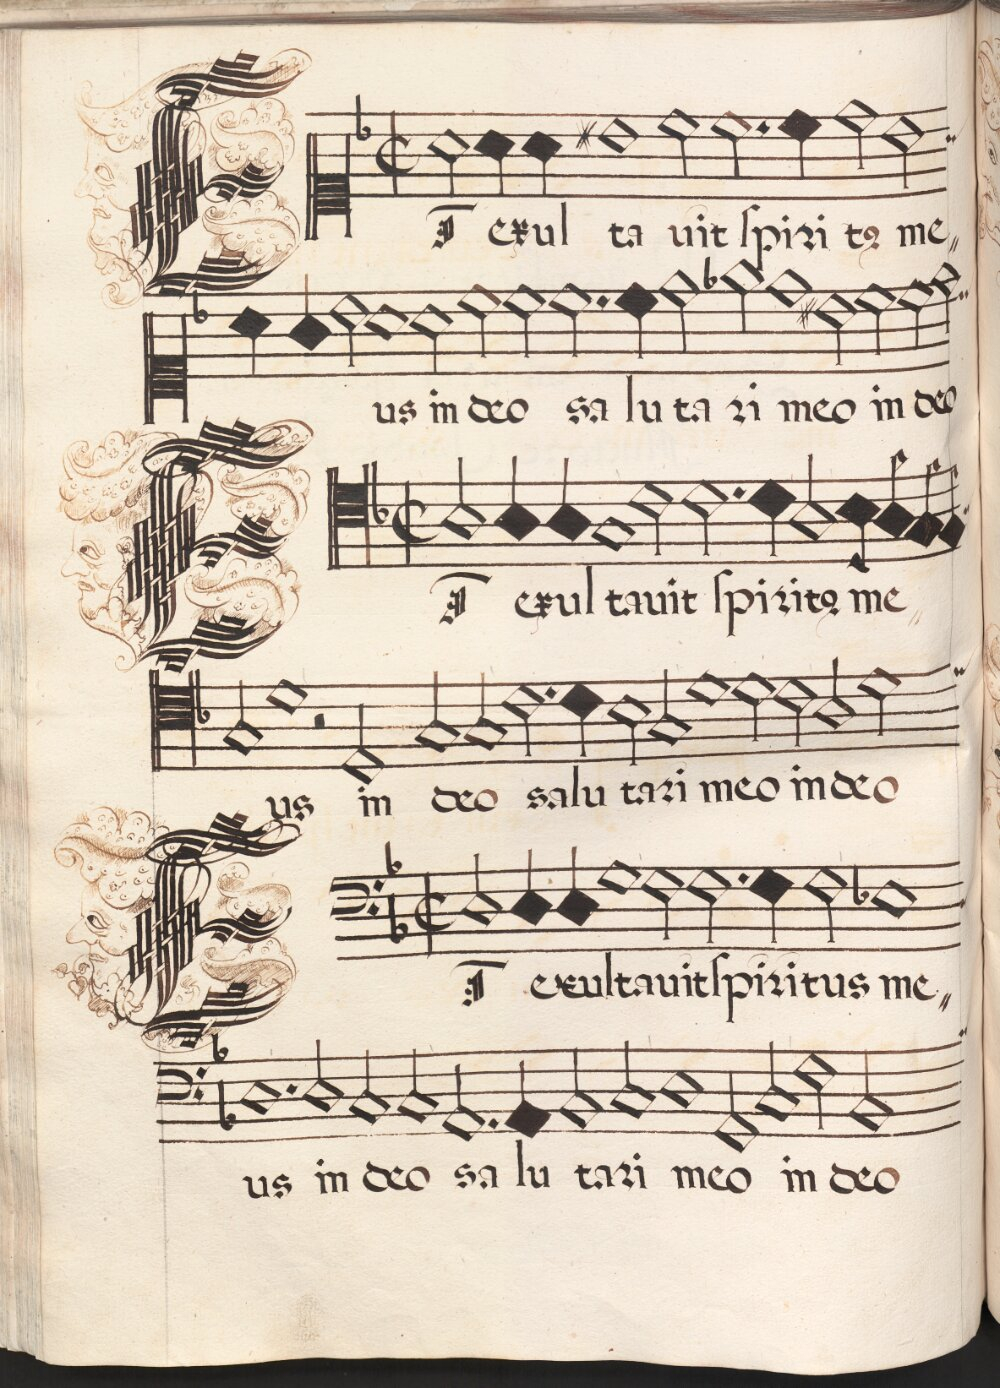 Et exul ta vit spiri tꝰ me„
us in deo sa lu ta ri meo in deo
Et exul tavit spiritꝰ me„
us in deo salu tari meo in deo
Et exultavit spiritus me„
us in deo sa lu tari meo in deo